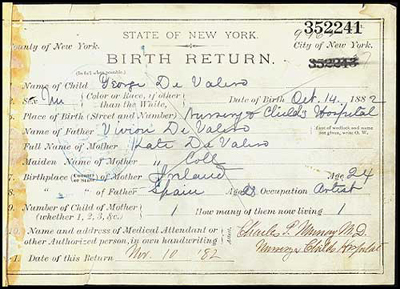 352241
STATE OF NEW YORK.
County of New York.
City of New York.
BIRTH RETURN.
Name of Child George De Valero
2. Sex M Color or Race, if other than the White, Date of Birth Oct. 14. 1882
Place of Birth (Street and Number) Nursery & Child's Hospital
Name of Father Vivion De Valero
Full Name of Mother Kate De Valero
Maiden Name of Mother " Coll
7. Birthplace of Mother Ireland Age 24
8. " of Father Spain Age 28 Occupation Artist
9. Number of Child of Mother 1 How many of them now living 1
(whether 1, 2, 3, &c.)
10. Name and address of Medical Attendant or other Authorized person, in own handwriting Charles E. Murray M.D.
Nursery & Childs Hospital
Date of this Return Nov. 10 '82